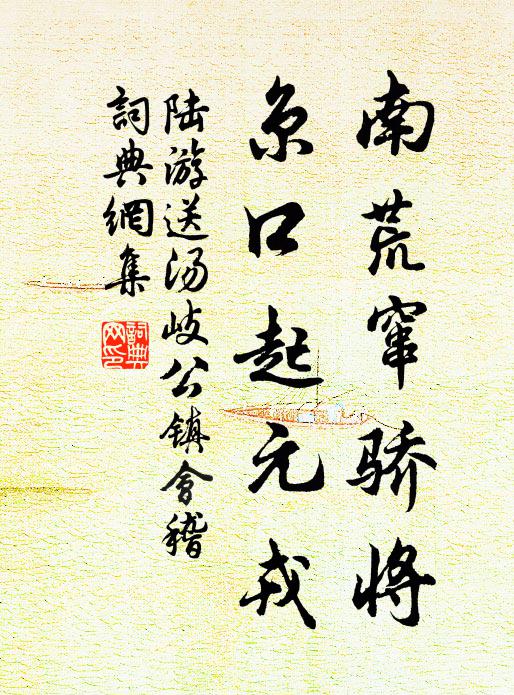 南荒窜骄将
京口起元戎
陆游送汤岐公镇会稽
詞典網集
詞典网印